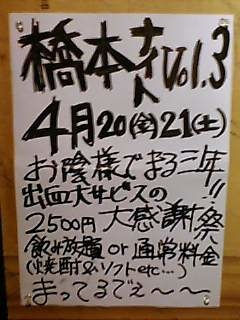 橋本ナイトVol.3
4月20(金)21(土)
お陰様でまる三年!!
出血大サービスの
2500円大感謝祭
飲み放題or通常料金
(焼酎&ソフトetc…)
まってるでぇ〜〜